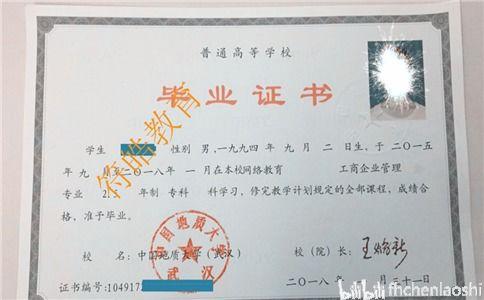 普通高等学校
毕业证书
学生 性别 男,一九九四年 九月 二日生,于二〇一五
年 九 月至二〇一八年 一月在本校网络教育 工商企业管理
专业 2. 年制 专科 科学习,修完教学计划规定的全部课程,成绩
合格,准予毕业。
校 名: 中国地质大学(武汉) 校(院)长: 王焰新
中国地质大学
武汉
证书编号:104917 二〇一八年 月三十一日
符晧教育
bilibili fhchenlaoshi